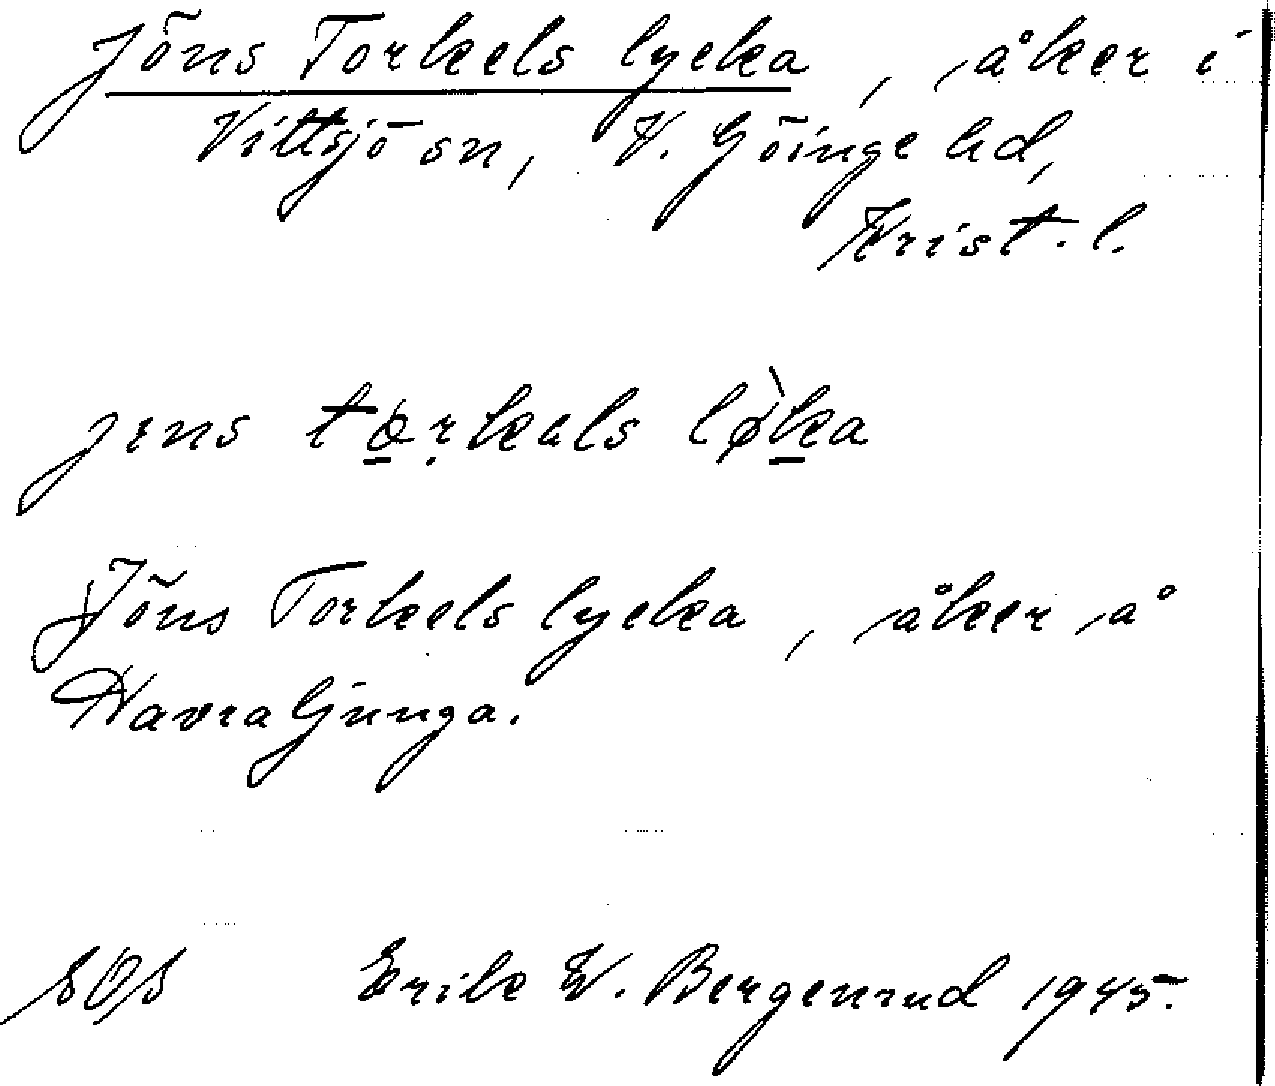 Jöns Torkels lycka, åker i
Vittsjö sn, V. Göinge hd,
Krist. l.
jens torkals løka
Jöns Torkels lycka, åker å
Havraljunga.
Erik W. Bergenrud 1945.